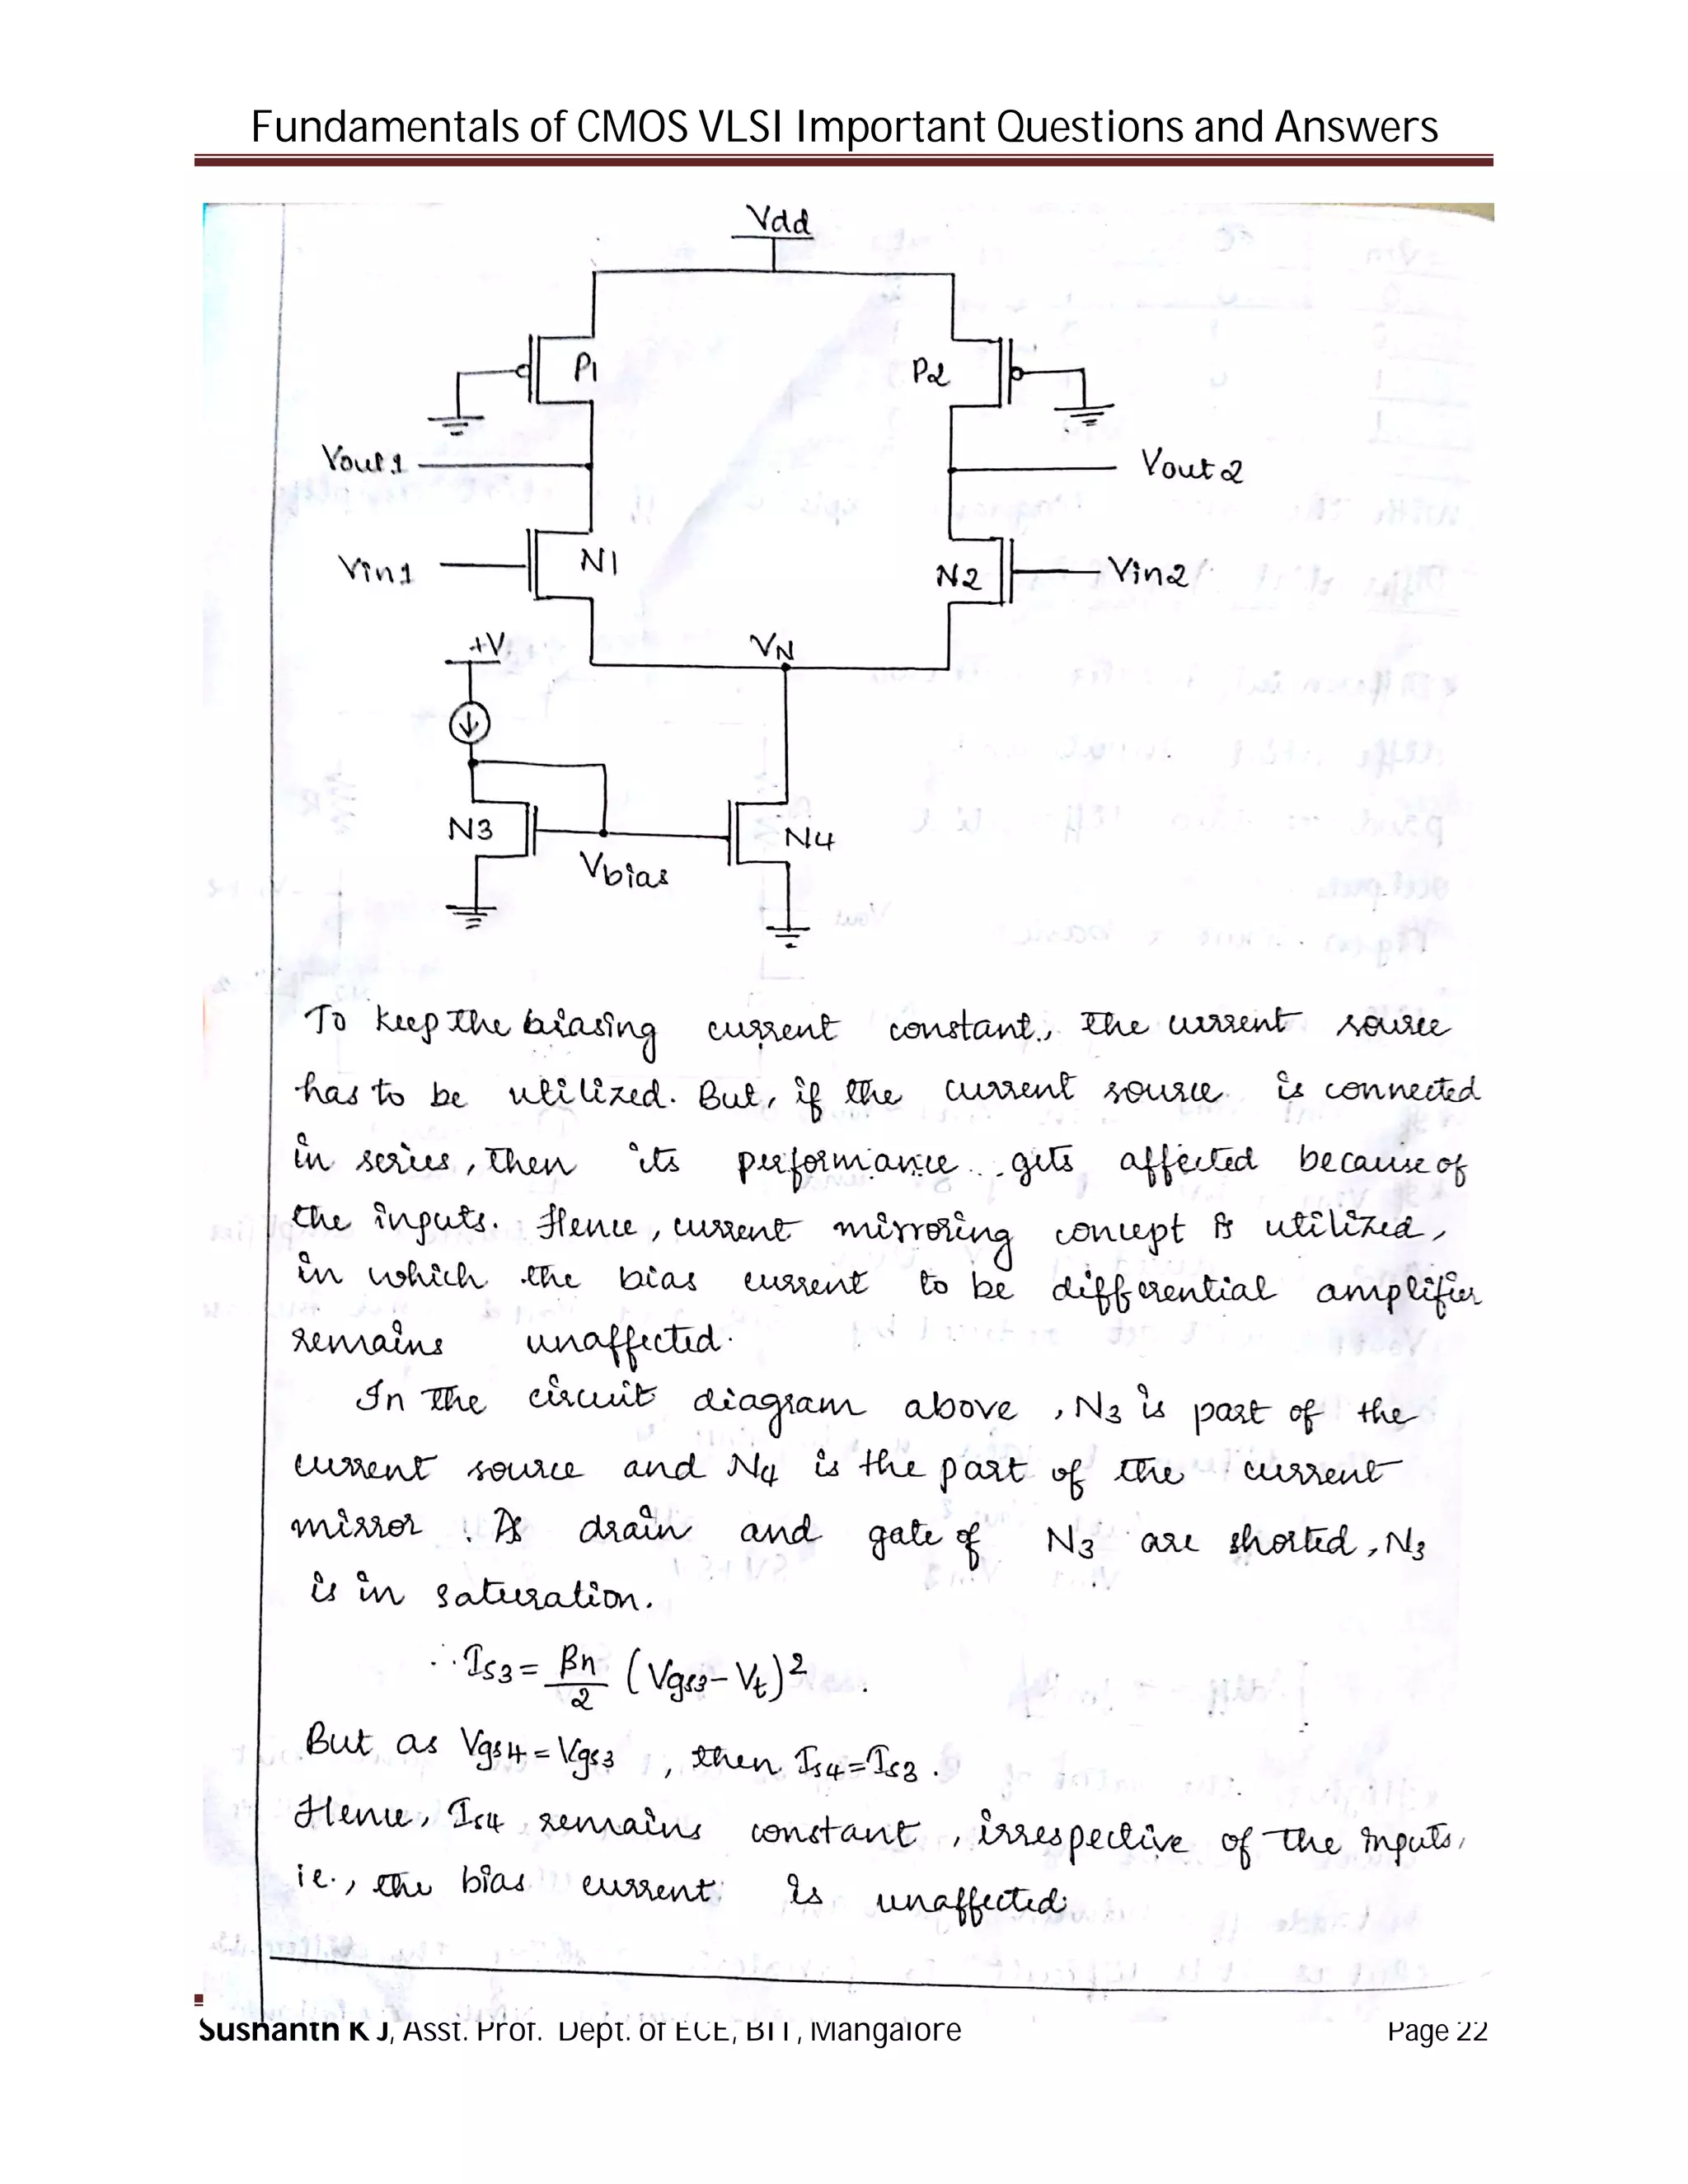 Fundamentals of CMOS VLSI Important Questions and Answers
Vdd
P1
P2
Vout1
Vout2
Vin1
N1
N2
Vin2
+V
VN
N3
N4
Vbias
To keep the biasing current constant, the current source
has to be utilized. But, if the current source is connected
in series, then its performance gets affected because of
the inputs. Hence, current mirroring concept is utilized,
in which the bias current to be differential amplifier
remains unaffected.
In the circuit diagram above, N3 is part of the
current source and N4 is the part of the current
mirror. As drain and gate of N3 are shorted, N3
is in saturation.
∴ Is3 = βn/2 (Vgs3 - Vt)²
But as Vgs4 = Vgs3, then Is4 = Is3.
Hence, Is4 remains constant, irrespective of the inputs,
ie., the bias current is unaffected.
Sushanth K J, Asst. Prof. Dept. of ECE, BIT, Mangalore
Page 22